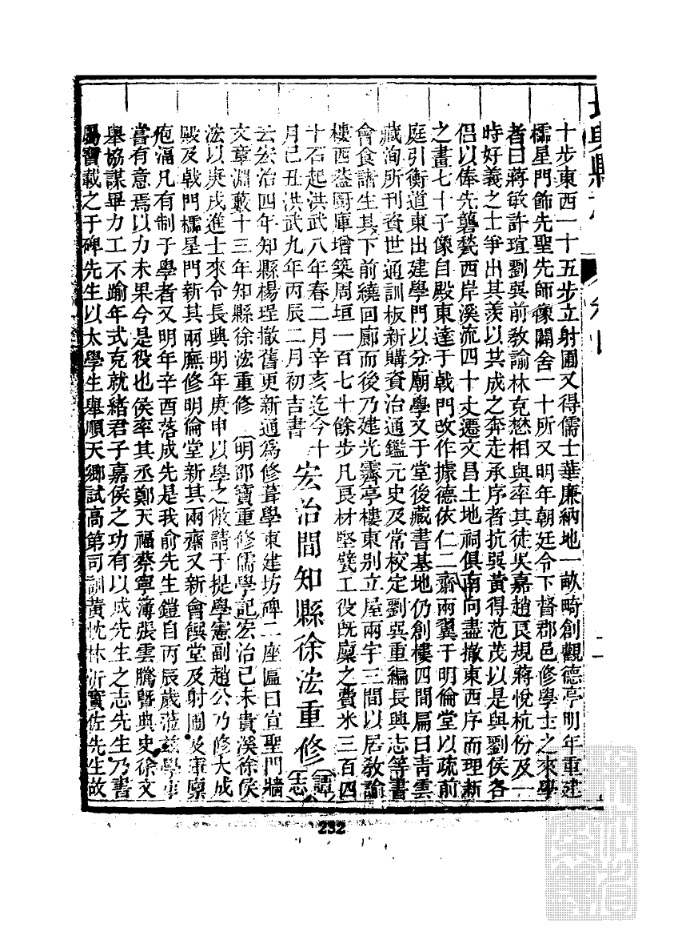 十步東西一十五步立射圃又得儒士華廉納地一畝畸創觀德亭明年重建
櫺星門飾先聖先師像闢舍一十所又明年朝廷令下督郡邑修學士之來學
者曰蔣敏許瑄劉吳前敎諭林克懋相與率其徒吳嘉趙良規蔣悅杭份及一
時好義之士爭出其羨以其成之奔走承序者抗巽黃得范茂以是與劉侯各
侶以俸先甓甃西岸溪流四十丈遷文昌土地祠俱南向盡撤東西序而理新
之畫七十子像自殿東達于戟門改作據德依仁二齋兩翼于明倫堂以疏前
庭引衡道東出建學門以分廟學又于堂後藏書基地仍創樓四間扁曰靑雲
藏洵所刊資世通訓板新購資治通鑑元史及常校定劉吳重編長興志等書
會食諸生其下前繞回廊而後乃建光霽亭樓東别立屋兩宇三間以居敎諭
樓西葢厨庫增築周垣一百七十餘步凡良材堅甓工役旣廩之費米三百四
十石起洪武八年春二月辛亥迄今十
月己丑洪武九年丙辰二月初吉書
宏治間知縣徐法重修
譚志
云宏治四年知縣楊珵撤舊更新通爲修葺學東建坊碑二座區曰宣聖門牆
文章淵藪十三年知縣徐法重修
明邵寶重修儒學記宏治己未貴溪徐侯
法以庚戌進士來令長興明年庚申以學之敝請于提學憲副趙公乃修大成
殿及戟門櫺星門新其兩廡修明倫堂新其兩齋又新會饌堂及射圃及庫廩
庖湢凡有制于學者又明年辛酉落成先是我俞先生鎧自丙辰歲蒞兹學事
嘗有意焉以力未果今是役也侯率其丞鄭天福蔡寧薄張雲騰曁典史徐文
舉協謀畢力工不踰年式克就緒君子嘉侯之功有以成先生之志先生乃書
屬寶載之于碑先生以太學生舉順天鄉試高第司訓黃忱林沂實佐先生故
232